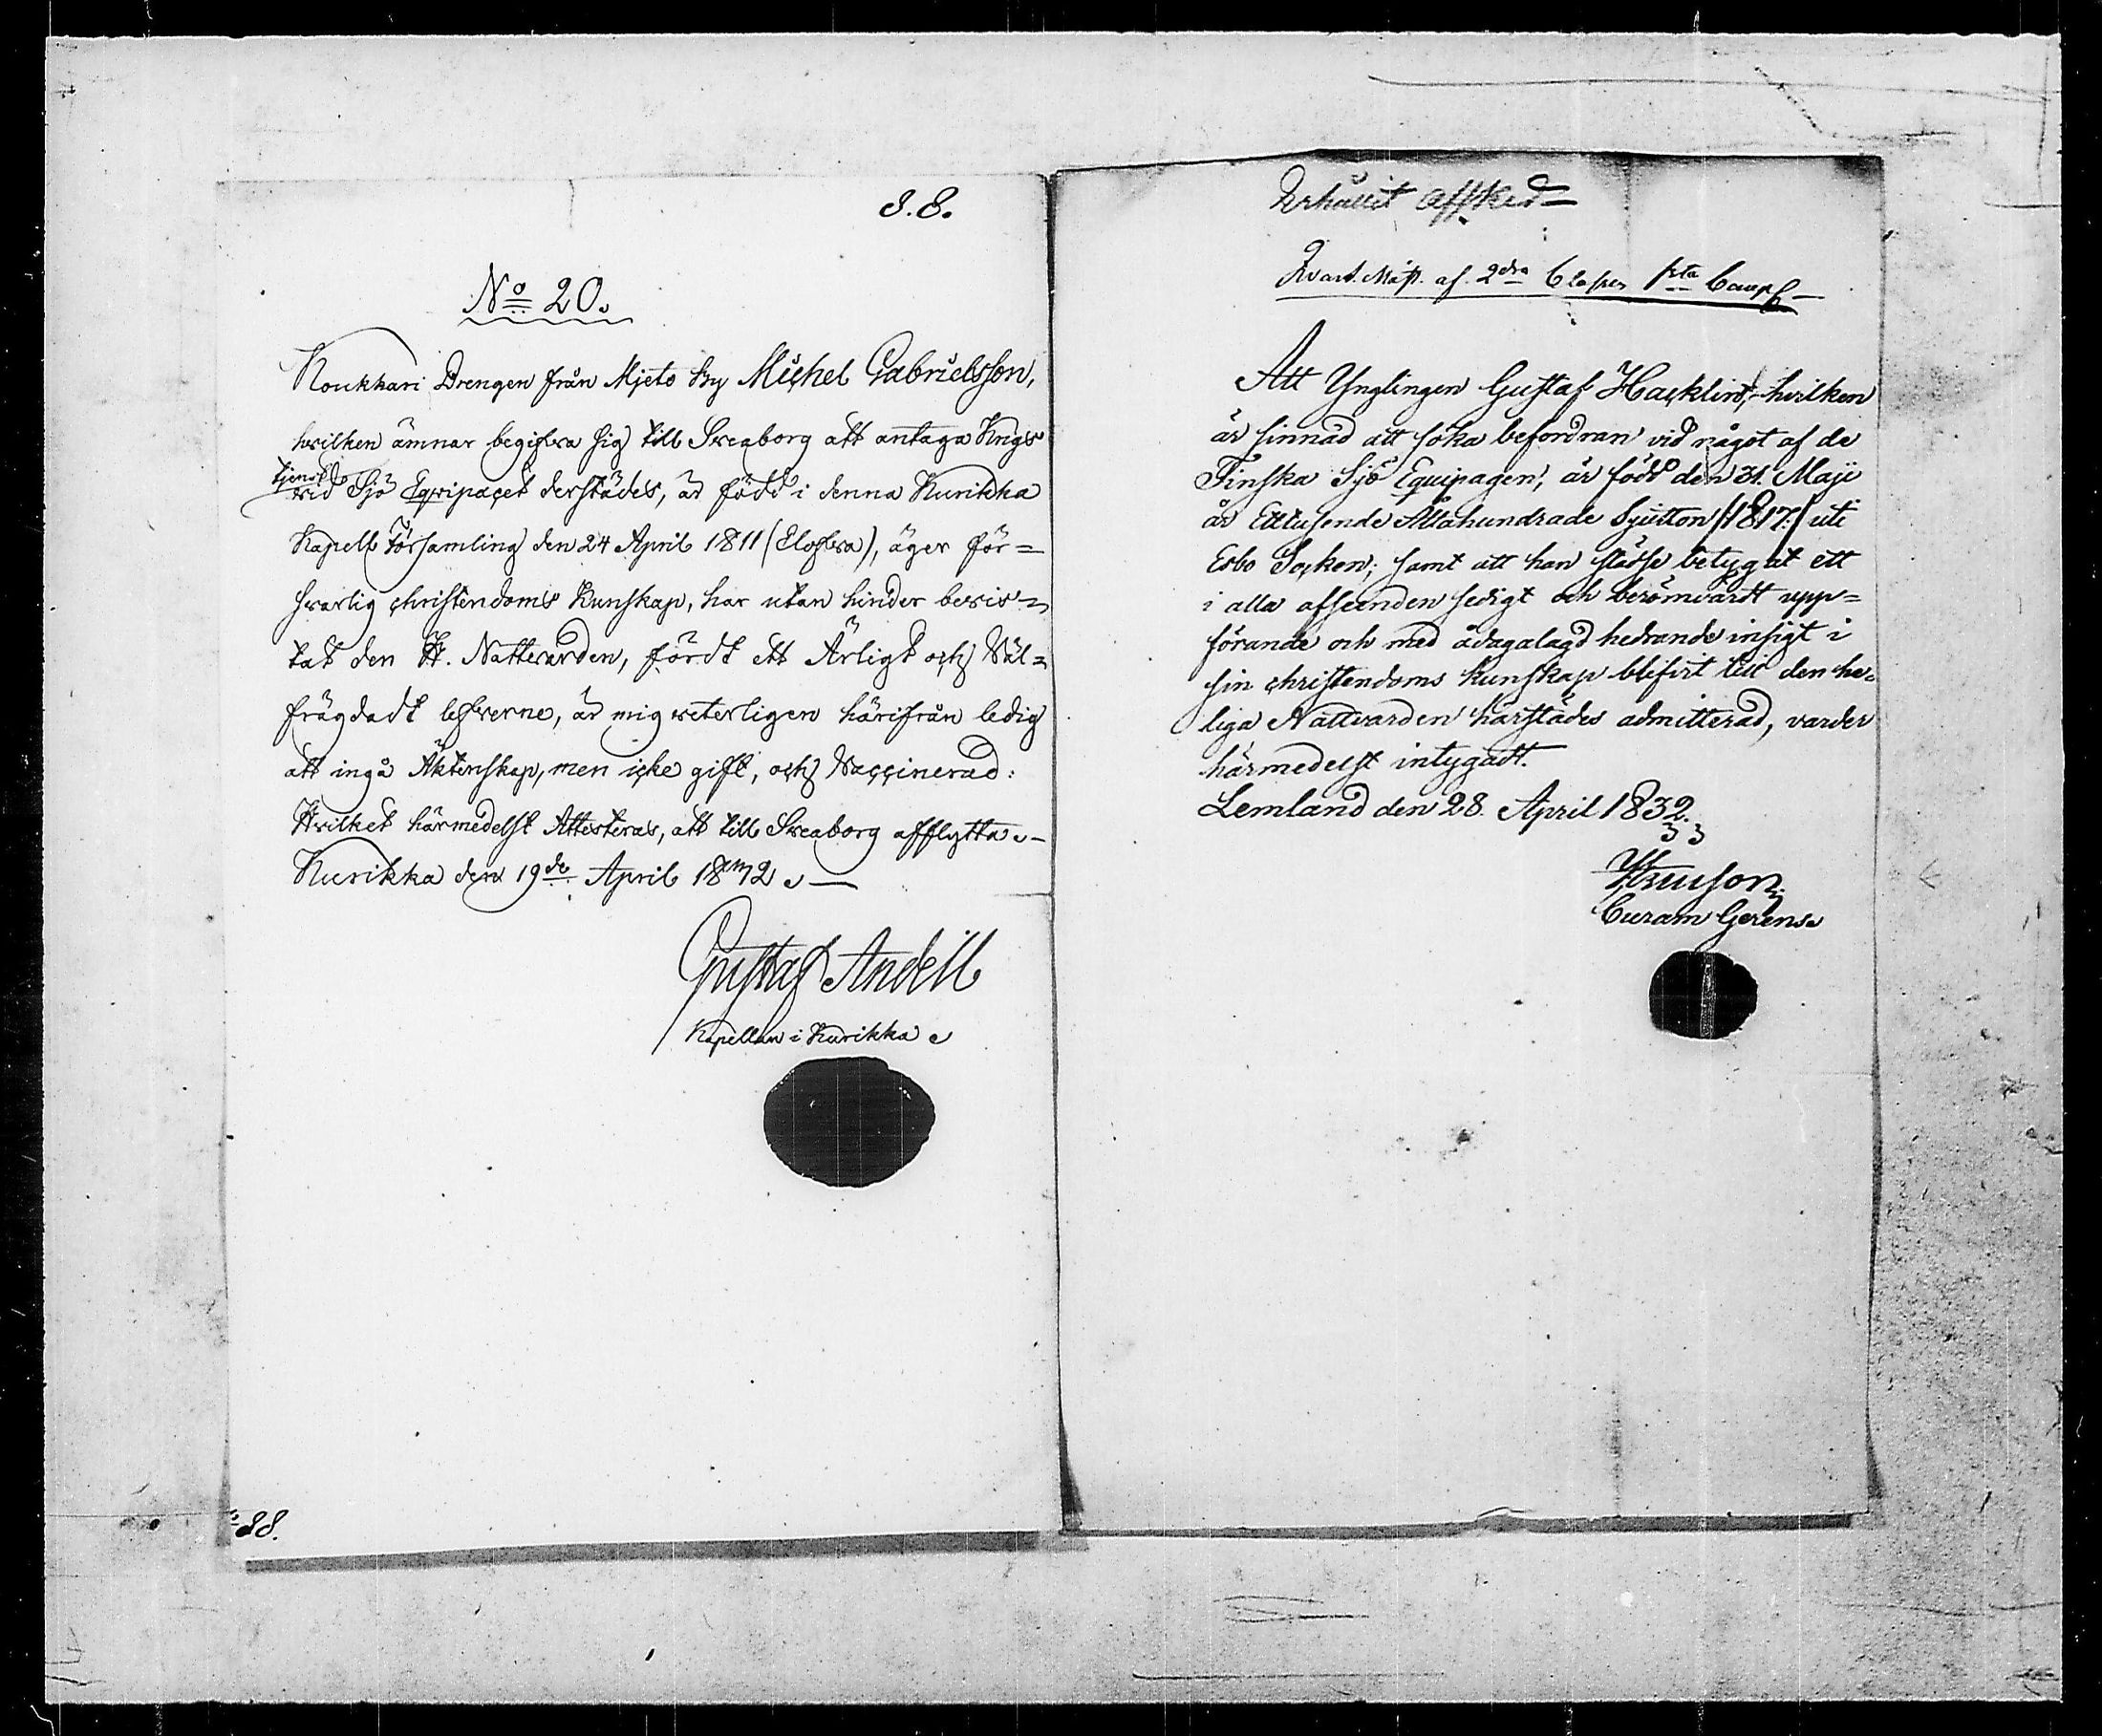 8.8.
No 20.
Koukkari Drengen från Mjeto By Michel Gabrielsson,
hvilken ämnar begifva sig till Sveaborg att antaga Krigs
tjenst
vid Sjö Eqvipaget derstädes, är född i denna Kurikka
Kapell Församling den 24 April 1811 (Elofva), äger för=
svarlig christendoms Kunskap, har utan hinder bevis=
tat den H. Nattvarden, fördt ett Ärligt och Väl=
frägdadt lefverne, är mig veterligen härifrån ledig
att ingå Äktenskap, men icke gift, och Vaccinerad:
Hvilket härmedelst Attesteras, att till Sveaborg afflytta.
Kurikka den 19de April 1832.
Gustaf Andell
Kapellan i Kurikka
88.
Erhållit affsked
Qvart. Mäst. af 2dra Classen 1sta Comp
Att Ynglingen Gustaf Hacklin, hvilken
är sinnad att söka befordran vid något af de
Finska Sjö Equipagen, är född den 31. Maji
år Ettusende Åttahundrade Sjutton /:1817:/ uti
Esbo Socken; samt att han städse betygat ett
i alla afseenden sedigt och berömvärdt upp=
förande och med ådagalagd hedrande insigt i
sin christendoms kunskap blifvit till den he=
liga Nattvarden härstädes admitterad, varder
härmedelst intygadt.
Lemland den 28. April 1832.
Curam Gerens